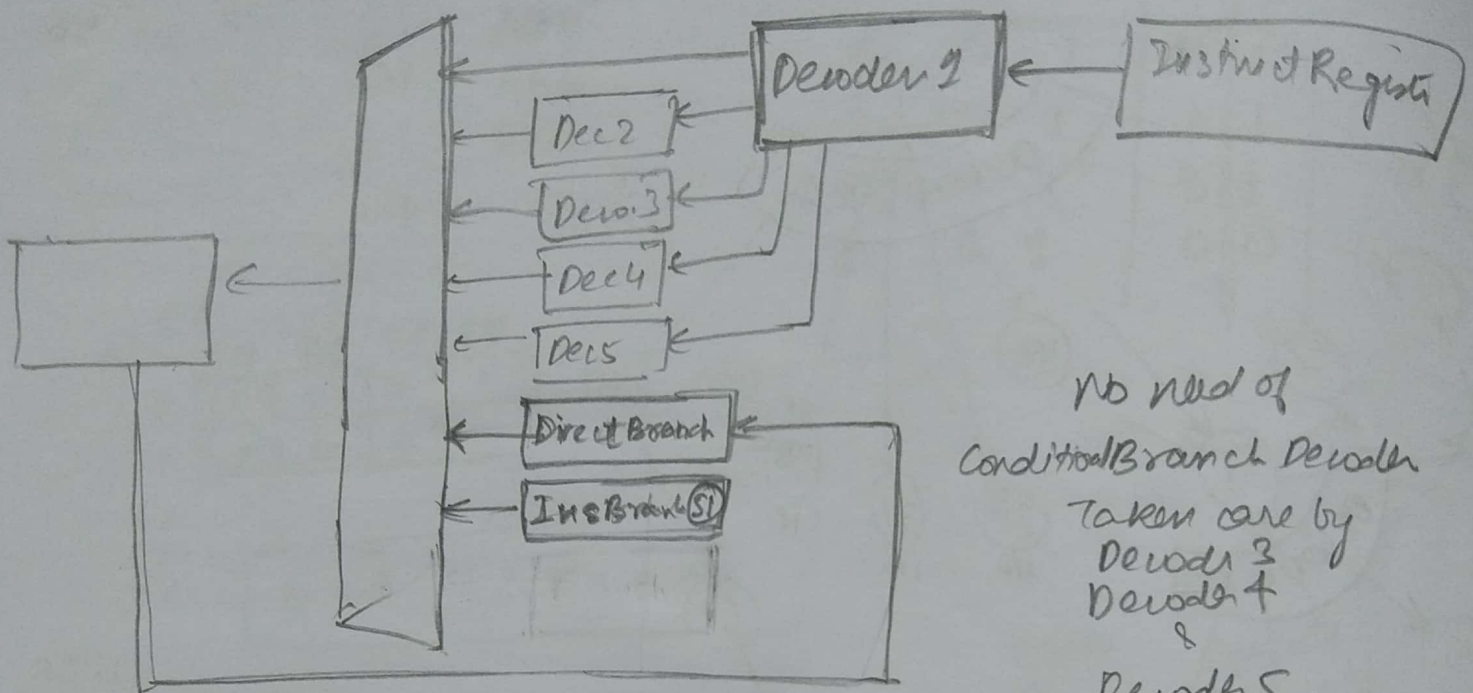 Decoder 1
Instruct Registe
Dec2
Deco.3
Dec4
Dec5
Direct Branch
InsBranch S1
No need of
Conditional Branch Decoder
Taken care by
Decoder 3
Decoder 4
&
Decoder 5